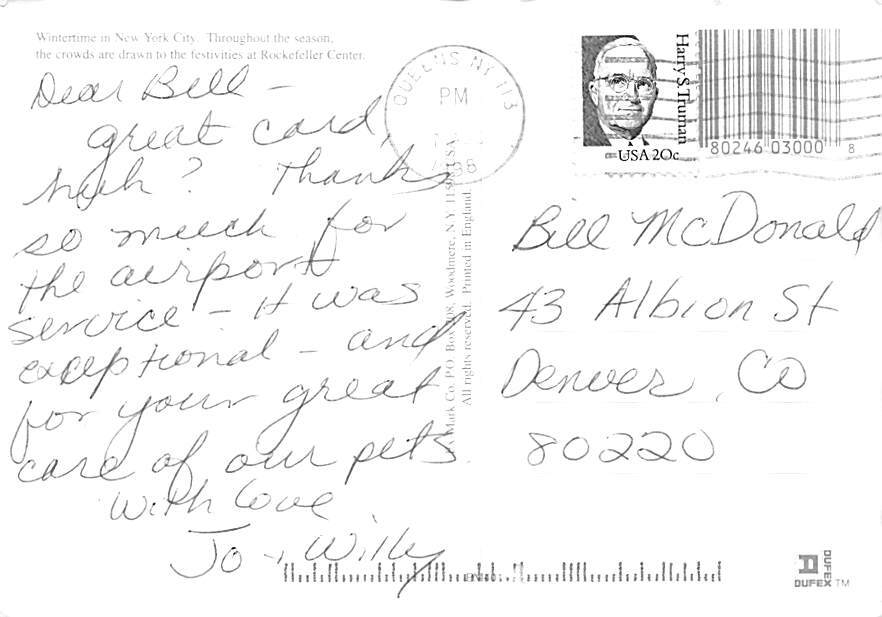 Wintertime in New York City. Throughout the season,
the crowds are drawn to the festivities at Rockefeller Center.
Dear Bill -
great card,
huh? Thanks
so much for
the airport
service - it was
exceptional - and
for your great
care of our pets.
With love
Jo + Willy
QUEENS NY 113
PM
Harry S. Truman
USA 20c
80246 03000 8
Mark Co. P.O. Box Woodmere, N.Y. 11598 USA.
All rights reserved. Printed in England.
Bill McDonald
43 Albion St
Denver, CO
80220
DUFEX
DUFEX TM